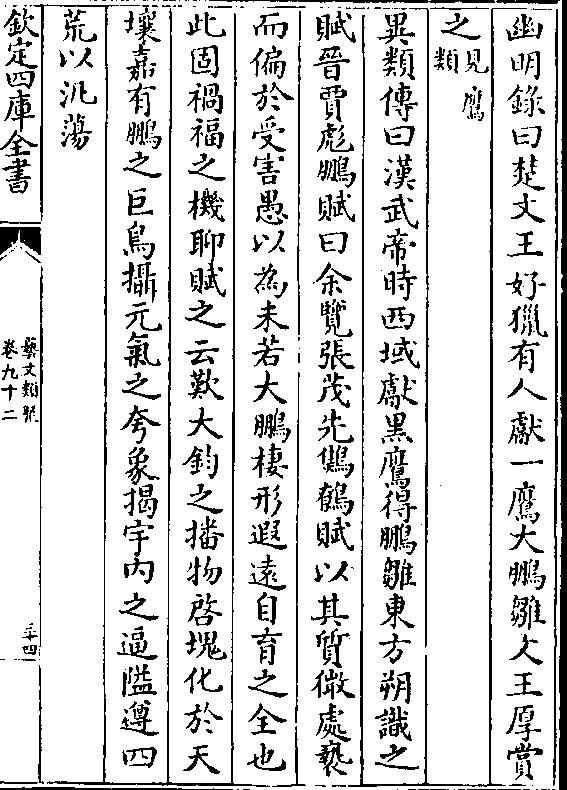 幽明錄曰楚文王好獵有人獻一鷹大鵬雛文王厚賞
之見鷹類
異類傳曰漢武帝時西域獻黑鷹得鵬雛東方朔識之
賦晉賈彪鵬賦曰余覽張茂先鷦鷯賦以其質微處褻
而偏於受害愚以為未若大鵬棲形遐遠自育之全也
此固禍福之機聊賦之云歎大鈞之播物啓塊化於天
壤嘉有鵬之巨鳥攝元氣之夸象揭宇内之逼隘遵四
荒以汎蕩
欽定四庫全書
藝文類聚
卷九十二
三十四